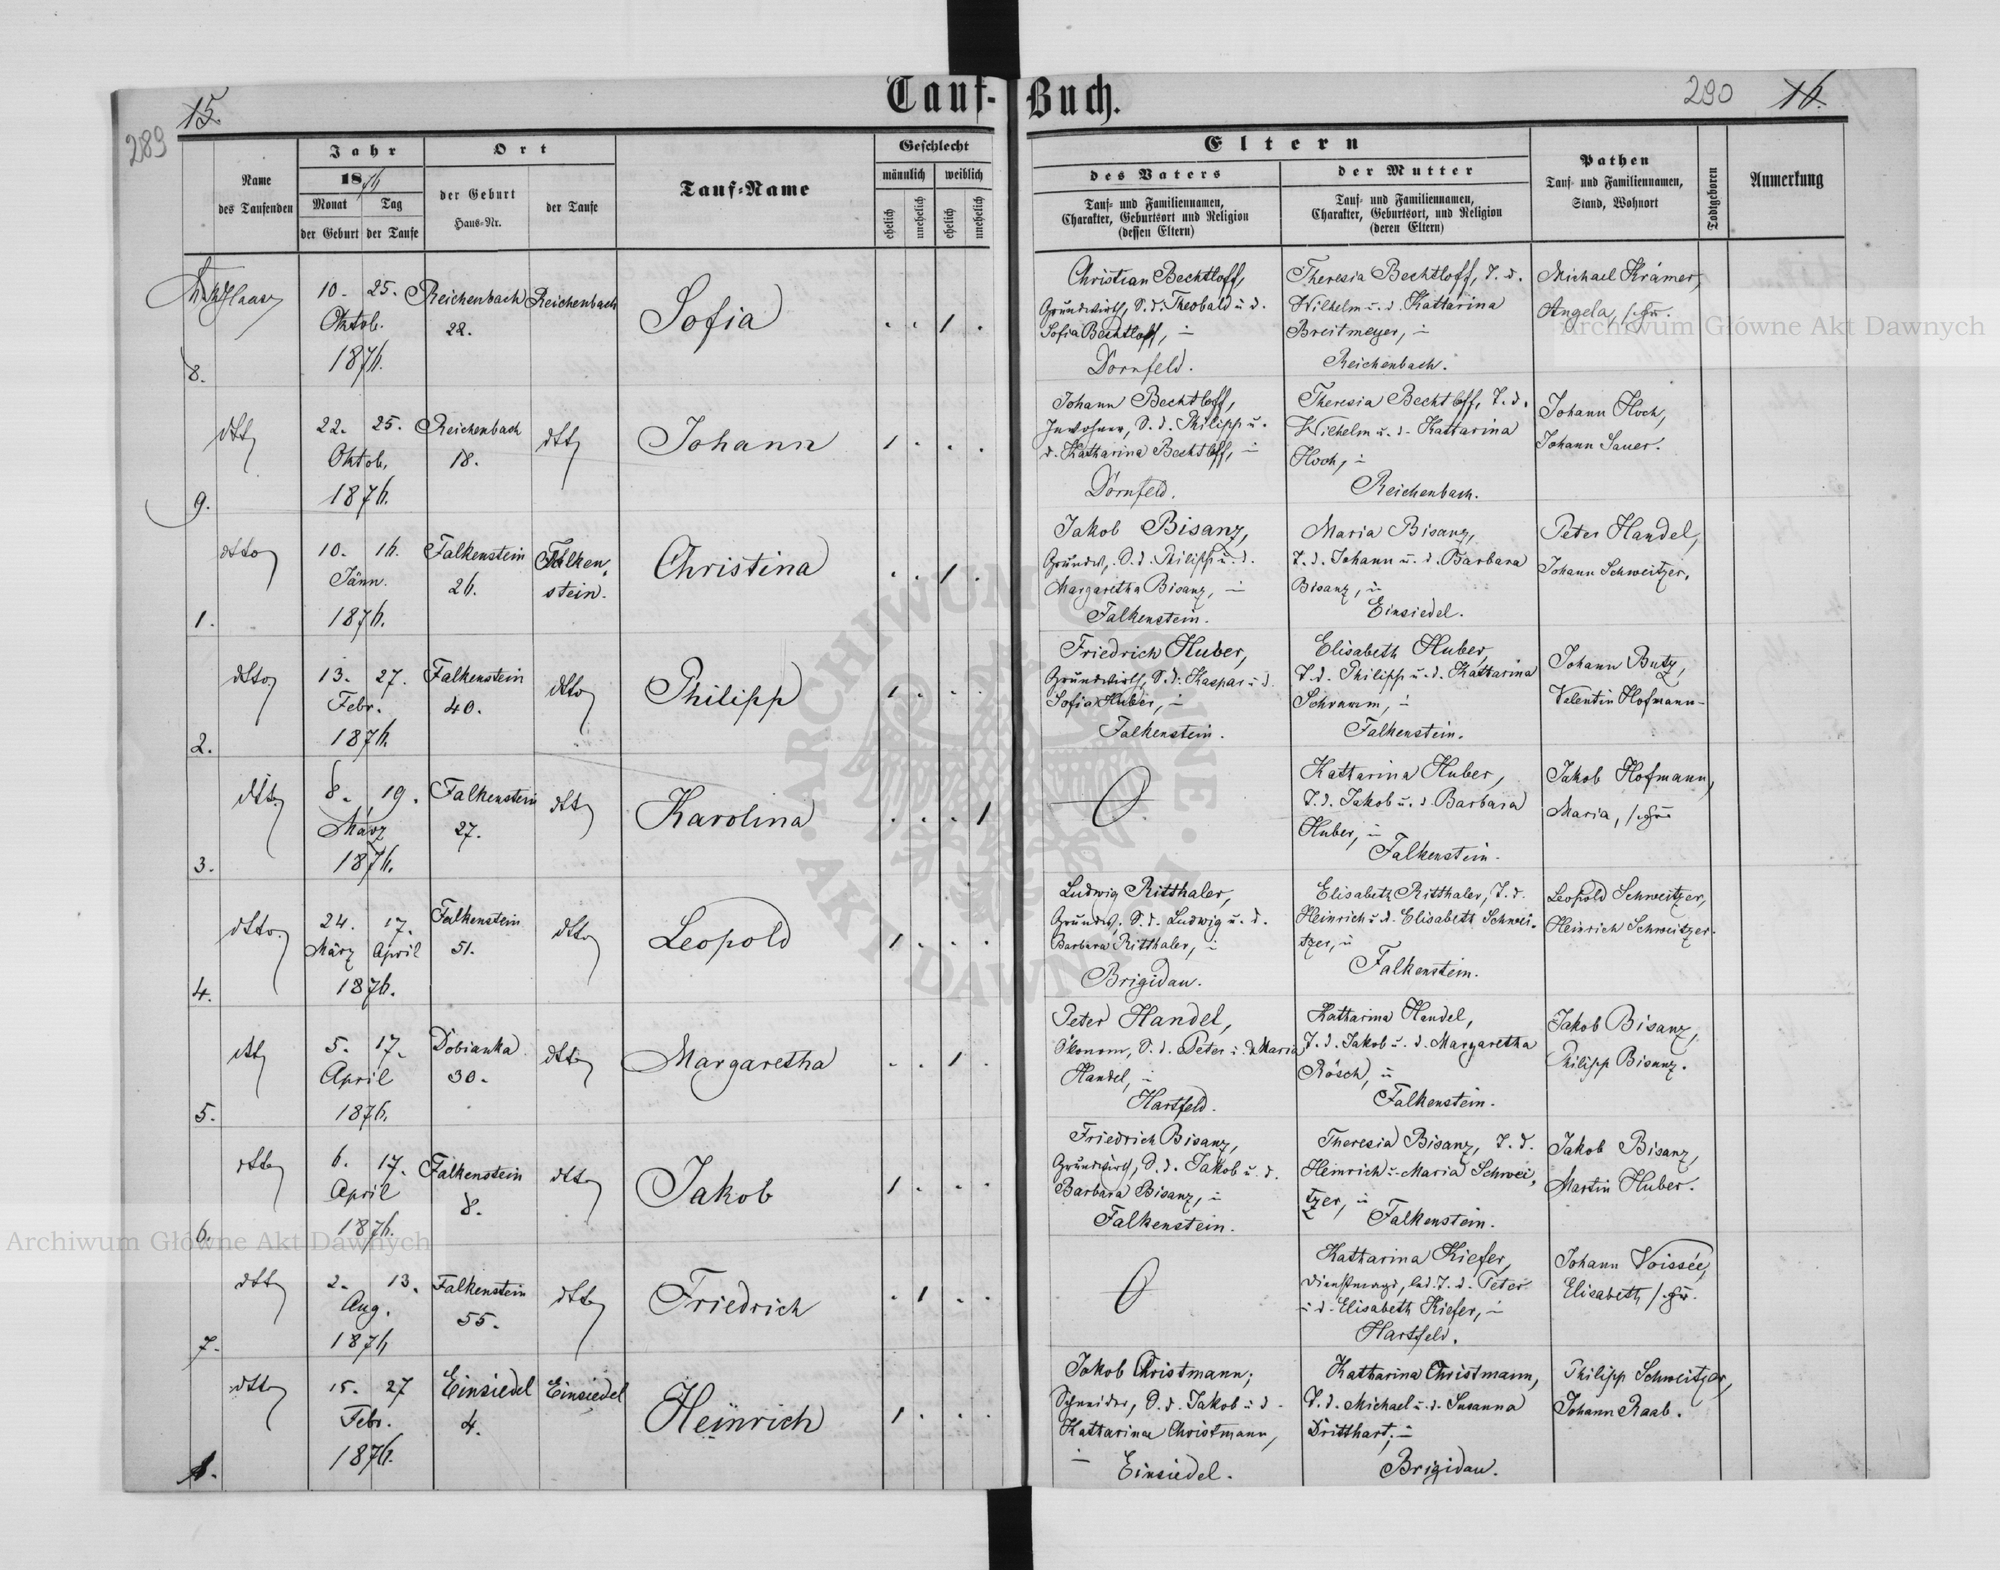 Tauf-Buch.
15.
289
290
16.
Jahr
Ort
Geschlecht
Eltern
Name
des Taufenden
1876
Monat
Tag
der Geburt
der Taufe
der Geburt
Haus-Nr.
der Taufe
Tauf-Name
männlich
weiblich
ehelich
unehelich
ehelich
unehelich
des Vaters
Tauf- und Familiennamen,
Charakter, Geburtsort und Religion
(dessen Eltern)
der Mutter
Tauf- und Familiennamen,
Charakter, Geburtsort, und Religion
(deren Eltern)
Pathen
Tauf- und Familiennamen,
Stand, Wohnort
Todtgeboren
Anmerkung
8.
Haase
10. 25.
Oktob.
1876.
Reichenbach
22.
Reichenbach
Sofia
. . 1 .
Christian Bechtloff,
Grundwirth, S. d. Theobald u. d.
Sofia Bechtloff,
Dornfeld.
Theresia Bechtloff, T. d.
Wilhelm u. d. Kattarina
Breitmeyer,
Reichenbach.
Michael Krämer,
Angela,
9.
dtto
22. 25.
Oktob.
1876.
Reichenbach
18.
dtto
Johann
1 . . .
Johann Bechtloff,
Inwohner, S. d. Philipp u.
d. Katharina Bechtloff,
Dornfeld.
Theresia Bechtloff, T. d.
Wilhelm u. d. Kattarina
Hoch,
Reichenbach.
Johann Hoch,
Johann Sauer.
1.
dtto
10. 16.
Jänn.
1876.
Falkenstein
26.
Falken-
stein.
Christina
. . 1 .
Jakob Bisanz,
Grundw., S. d. Philipp u. d.
Margaretha Bisanz,
Falkenstein.
Maria Bisanz,
T. d. Johann u. d. Barbara
Bisanz,
Einsiedel.
Peter Handel,
Johann Schweitzer.
2.
dtto
13. 27.
Febr.
1876.
Falkenstein
40.
dtto
Philipp
1 . . .
Friedrich Huber,
Grundwirth, S. d. Kaspar u. d.
Sofia Huber,
Falkenstein.
Elisabeth Huber,
T. d. Philipp u. d. Kattarina
Schramm,
Falkenstein.
Johann Butz,
Valentin Hofmann
3.
dtto
8. 19.
März
1876.
Falkenstein
27.
dtto
Karolina
. . . 1
Kattarina Huber,
T. d. Jakob u. d. Barbara
Huber,
Falkenstein.
Jakob Hofmann,
Maria,
4.
dtto.
24. 17.
März April
1876.
Falkenstein
51.
dtto
Leopold
1 . . .
Ludwig Ritthaler,
Grundw., S. d. Ludwig u. d.
Barbara Ritthaler,
Brigidau.
Elisabeth Ritthaler, T. d.
Heinrich u. d. Elisabeth Schwei-
tzer,
Falkenstein.
Leopold Schweitzer,
Heinrich Schweitzer.
5.
dtto
5. 17.
April
1876.
Dobianka
30.
dtto
Margaretha
. . 1 .
Peter Handel,
Ökonom, S. d. Peter u. d. Maria
Handel,
Hartfeld.
Katharina Handel,
T. d. Jakob u. d. Margaretha
Rösch,
Falkenstein.
Jakob Bisanz,
Philipp Bisanz.
6.
dtto
6. 17.
April
1876.
Falkenstein
8.
dtto
Jakob
1 . . .
Friedrich Bisanz,
Grundwirth, S. d. Jakob u. d.
Barbara Bisanz,
Falkenstein.
Theresia Bisanz, T. d.
Heinrich u. Maria Schwei-
tzer,
Falkenstein.
Jakob Bisanz,
Martin Huber.
7.
dtto
2. 13.
Aug.
1876
Falkenstein
55.
dtto
Friedrich
. 1 . .
Katharina Kiefer,
Dienstmagd, led. T. d. Peter
u. d. Elisabeth Kiefer,
Hartfeld.
Johann Voissée,
Elisabeth
1.
dtto
15. 27
Febr.
1876.
Einsiedel
4.
Einsiedel
Heinrich
1 . . .
Jakob Christmann,
Schneider, S. d. Jakob u. d.
Kattarina Christmann,
Einsiedel.
Katharina Christmann,
T. d. Michael u. d. Susanna
Dritthart,
Brigidau.
Philipp Schweitzer,
Johann Raab.
Archiwum Główne Akt Dawnych
Archiwum Główne Akt Dawnych
ARCHIWUM GŁÓWNE AKT DAWNYCH